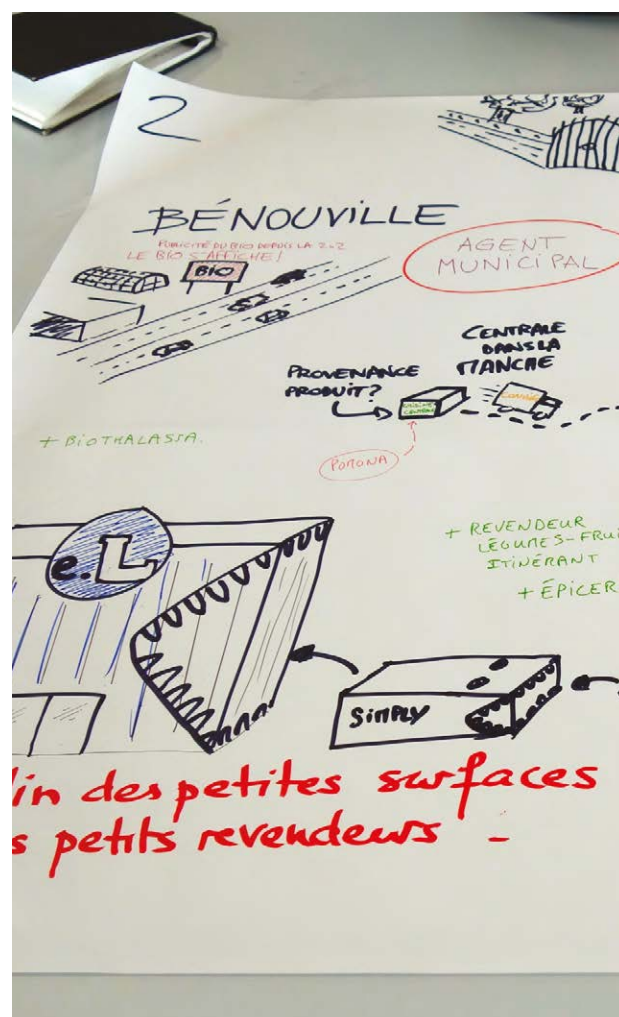 2
BÉNOUVILLE
PUBLICITÉ DU BIO DEPUIS LA 2x2
LE BIO S'AFFICHE!
BIO
AGENT
MUNICIPAL
CENTRALE
DANS LA
MANCHE
PROVENANCE
PRODUIT?
POMONA
+ BIOTHALASSA.
+ REVENDEUR
LÉGUMES-FRUI
ITINÉRANT
+ ÉPICER
e.L
SIMPLY
in des petites surfaces
s petits revendeurs -